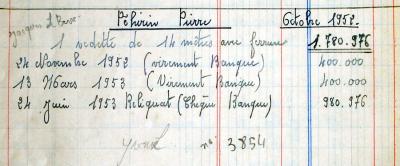 Pichirin Pierre Octobre 1952.
1 vedette de 14 mètres avec ferrure 1.780.976
24 Novembre 1952 (virement Banque) 400.000
13 Mars 1953 (Virement Banque) 400.000
24 Juin 1953 Reliquat (Chèque Banque) 980.976
n° 3854